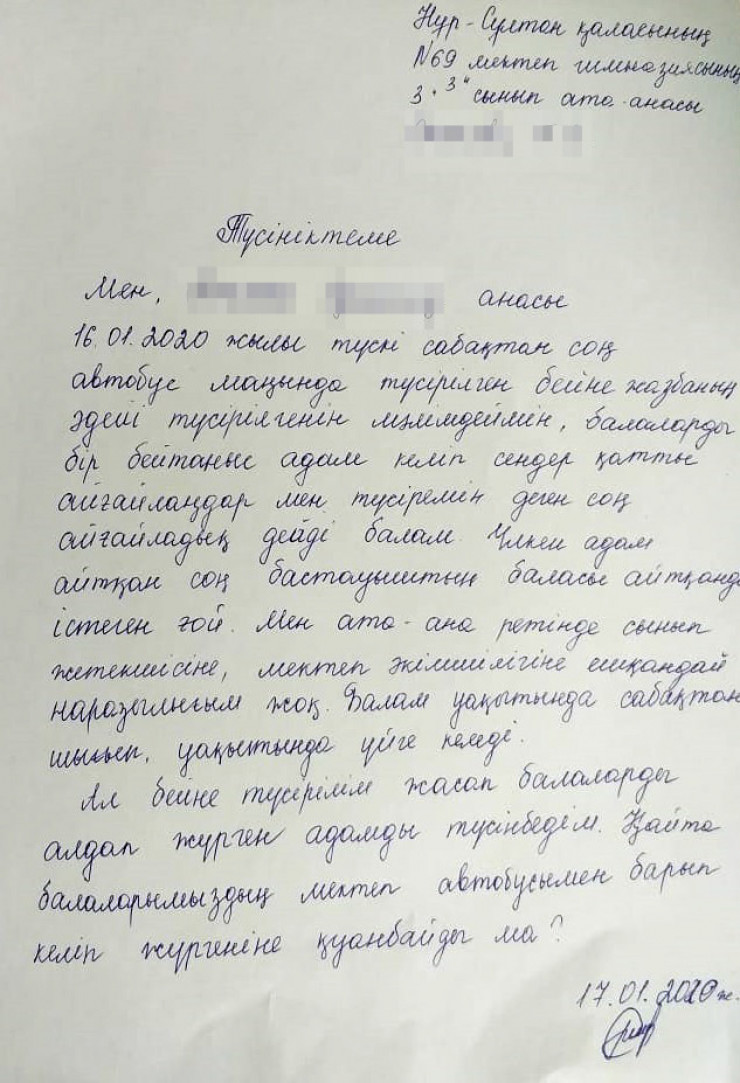 Нұр-Сұлтан қаласының
N69 мектеп гимназиясының
3 "З" сынып ата-анасы
Түсініктеме
Мен, анасы
16.01.2020 жылы түскі сабақтан соң
автобус маңында түсірілген бейне жазбаның
әдейі түсірілгенін мәлімдеймін, балаларды
бір бейтаныс адам келіп сендер қатты
айғайлаңдар мен түсіремін деген соң
айғайладық дейді балам. Үлкен адам
айтқан соң бастауыштың баласы айтқанды
істеген ғой. Мен ата-ана ретінде сынып
жетекшісіне, мектеп әкімшілігіне ешқандай
наразылығым жоқ. Балам уақытында сабақтан
шығып, уақытында үйге келеді.
Ал бейне түсірілім жасап балаларды
алдап жүрген адамды түсінбедім. Қайта
балаларымыздың мектеп автобусымен барып
келіп жүргеніне қуанбайды ма?
17.01.2020 ж.